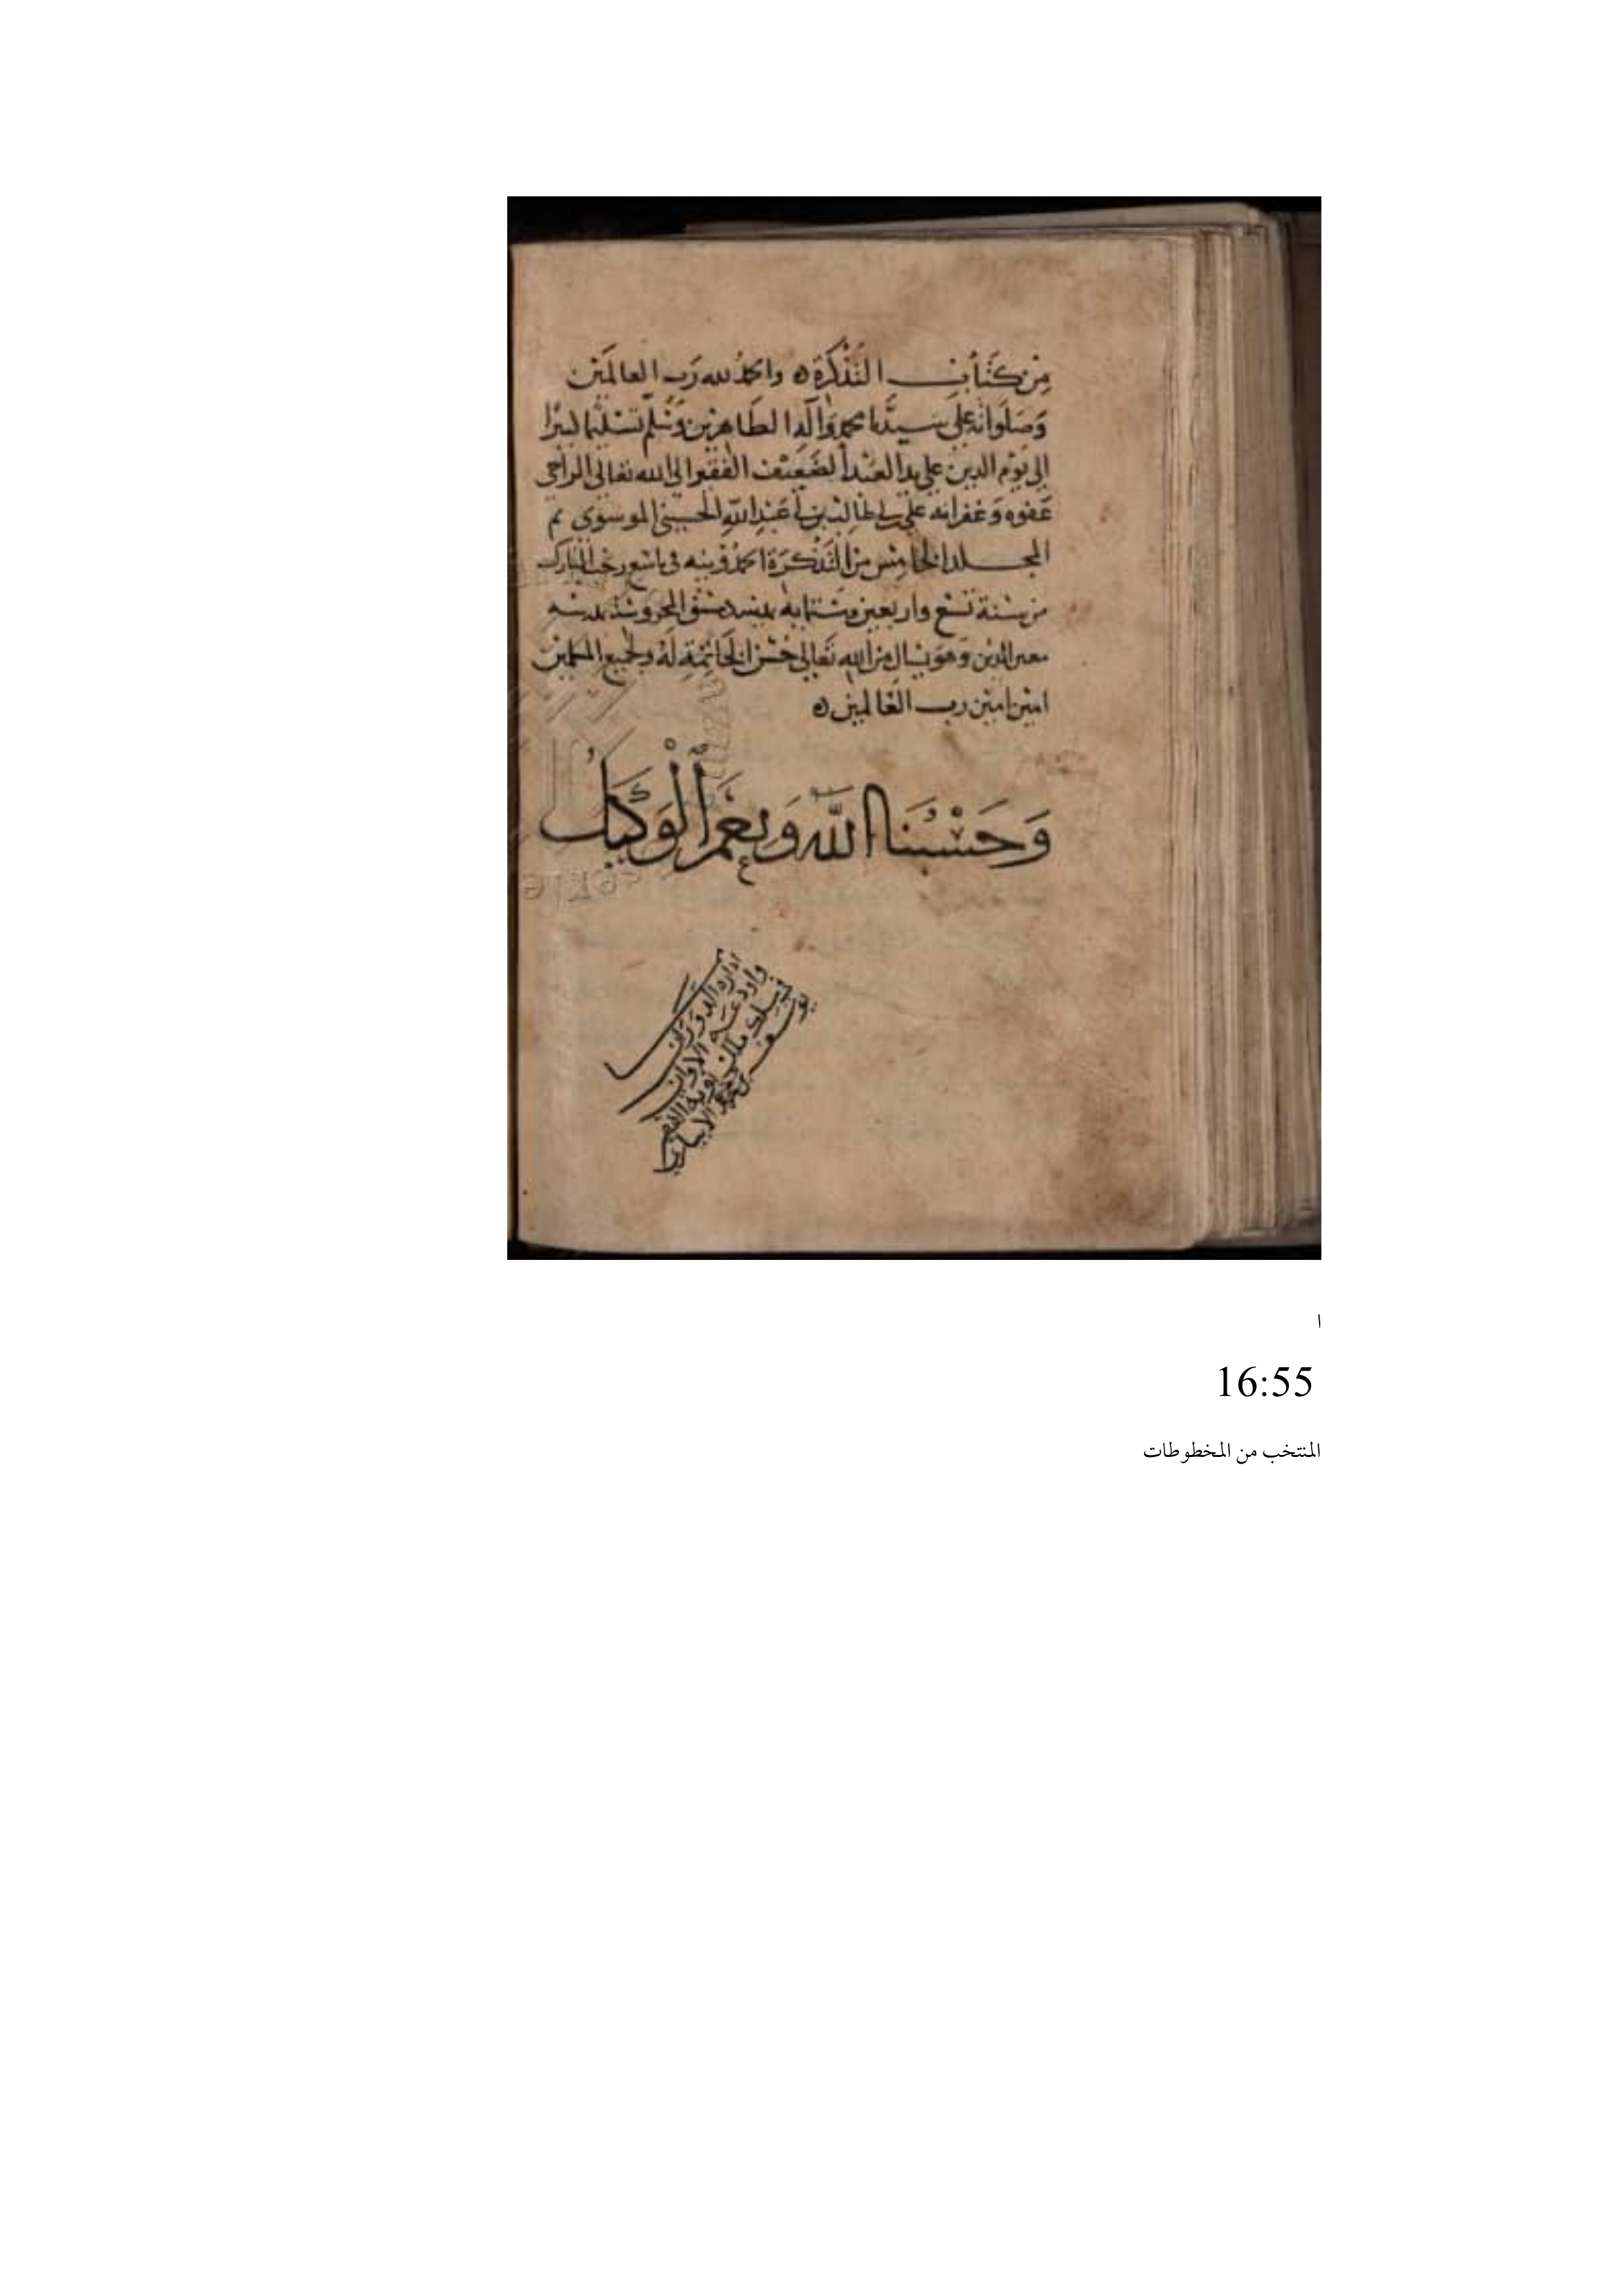 من كتاب التذكرة والحمد لله رب العالمين
وصلواته على سيدنا محمد وآله الطاهرين وسلم تسليما
إلى يوم الدين على يد العبد الضعيف الفقير الى الله تعالى الراجى
عفوه وغفرانه على بن ابى طالب بن عبد الله الحسينى الموسوى تم
المجلد الخامس من التذكرة الحمدونيه فى تاسع رجب المبارك
من سنة تسع واربعين وستمايه بدمشق المحروسة بمدرسه
معين الدين وهو يسال من الله تعالى حسن الخاتمة له ولجميع المسلمين
امين امين رب العالمين
وحسبنا الله ونعم الوكيل
ا
16:55
المنتخب من المخطوطات